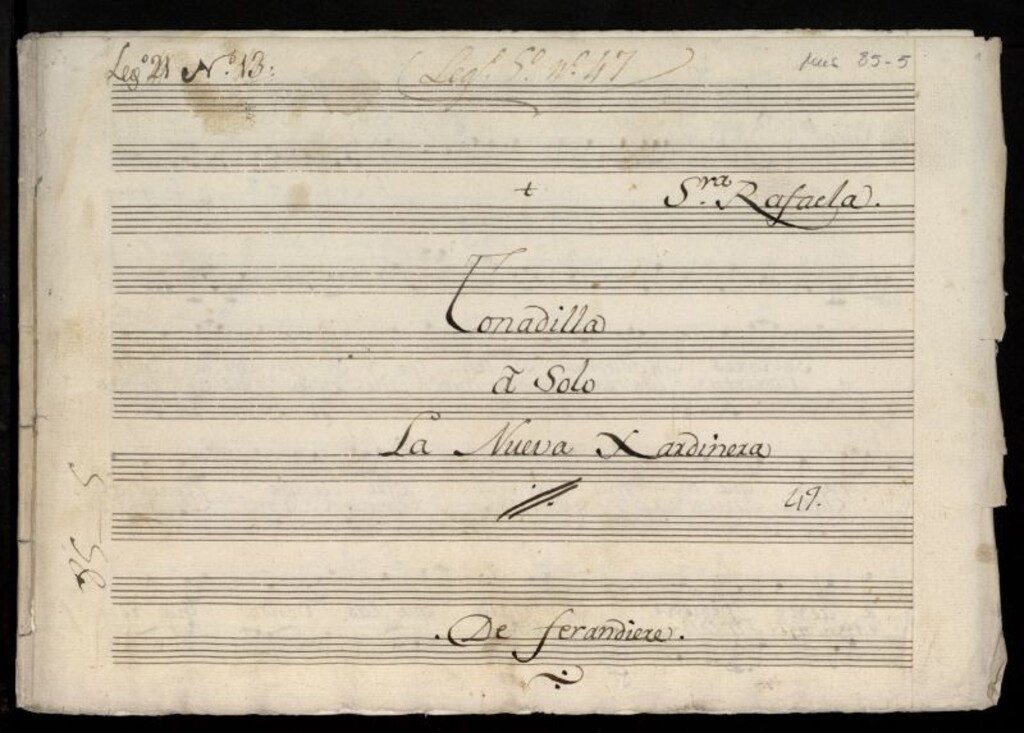 Leg.º 21 N.º 13.
(Leg.º 5.º nº. 47)
Mus 85-5
+
S.ra Rafaela.
Tonadilla
â Solo
La Nueva Xardinera
47.
85-5
. De ferandiere.